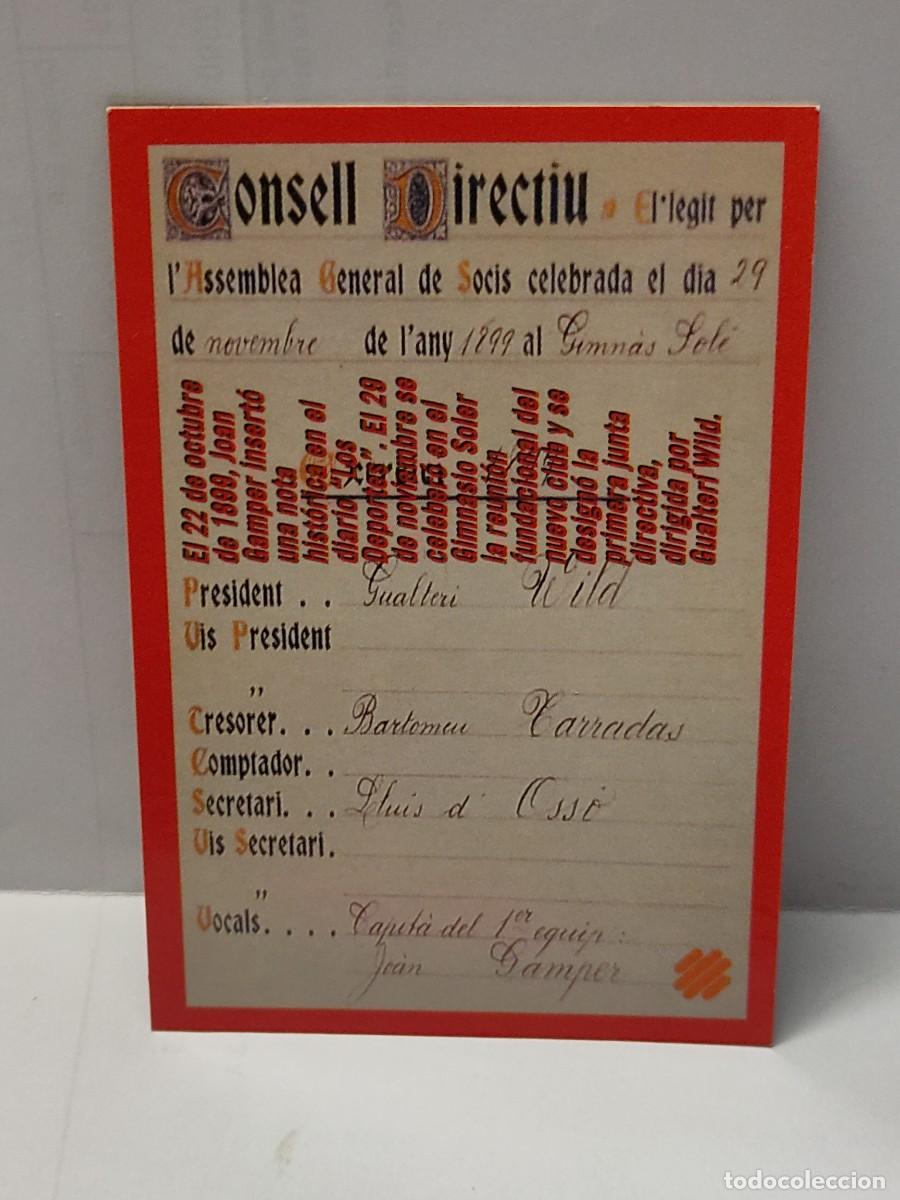 Consell Directiu El·legit per
l'Assemblea General de Socis celebrada el dia 29
de novembre de l'any 1899 al Gimnàs Solé
El 22 de octubre
de 1899, Joan
Gamper insertó
una nota
histórica en el
diario "Los
Deportes". El 29
de noviembre se
celebró en el
Gimnasio Soler
la reunión
fundacional del
nuevo club y se
designó la
primera junta
directiva,
dirigida por
Gualteri Wild.
President . . Gualteri Wild
Vis President
"
Tresorer. . . Bartomeu Tarradas
Comptador. .
Secretari. . . Lluis d' Ossó
Vis Secretari.
"
Vocals. . . . Capità del 1er equip:
Joàn Gamper
todocoleccion